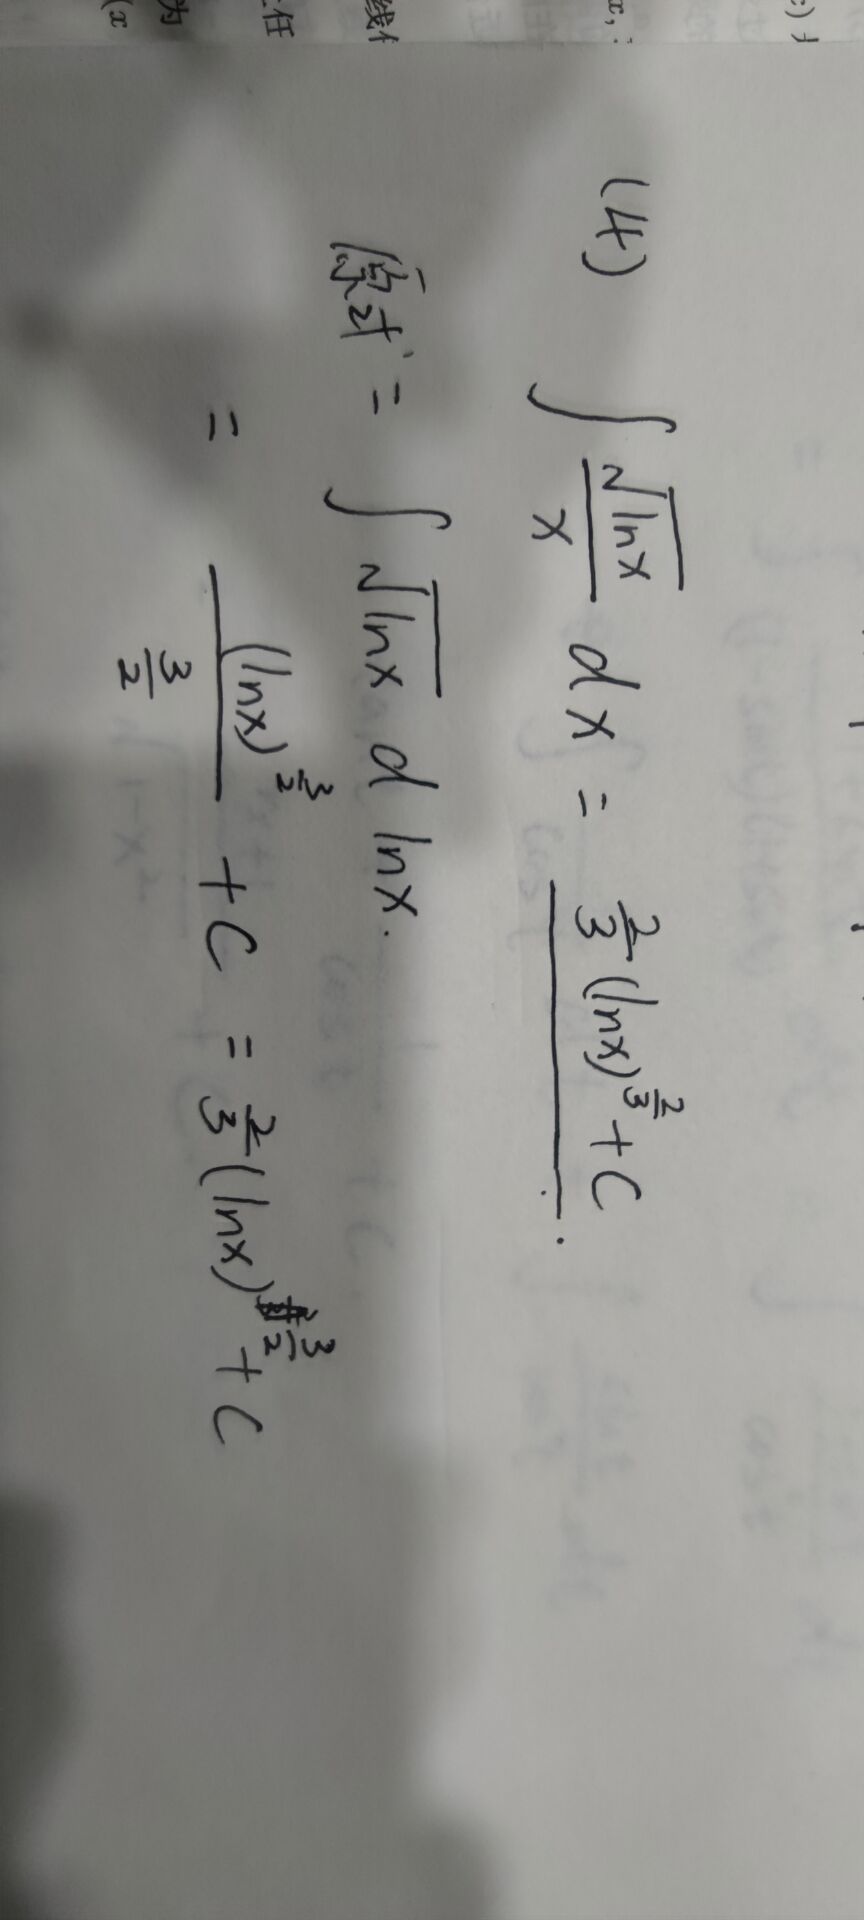 x,
线
任
为
(x
(4) ∫ √lnx / x dx = 2/3 (lnx)^(2/3) + C.
原式 = ∫ √lnx d lnx.
= (lnx)^(3/2) / (3/2) + C = 2/3 (lnx)^(3/2) + C